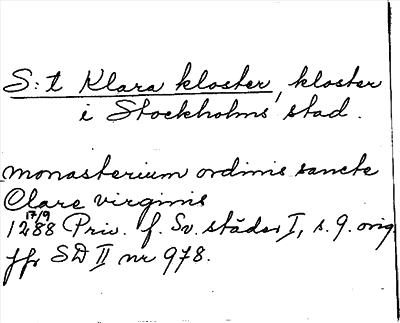 S:t Klara kloster, kloster
i Stockholms stad.
monasterium ordinis sancte
Clare virginis
17/9
1288 Priv. f. Sv. städer I, s. 9. orig.
jfr SD II nr 978.